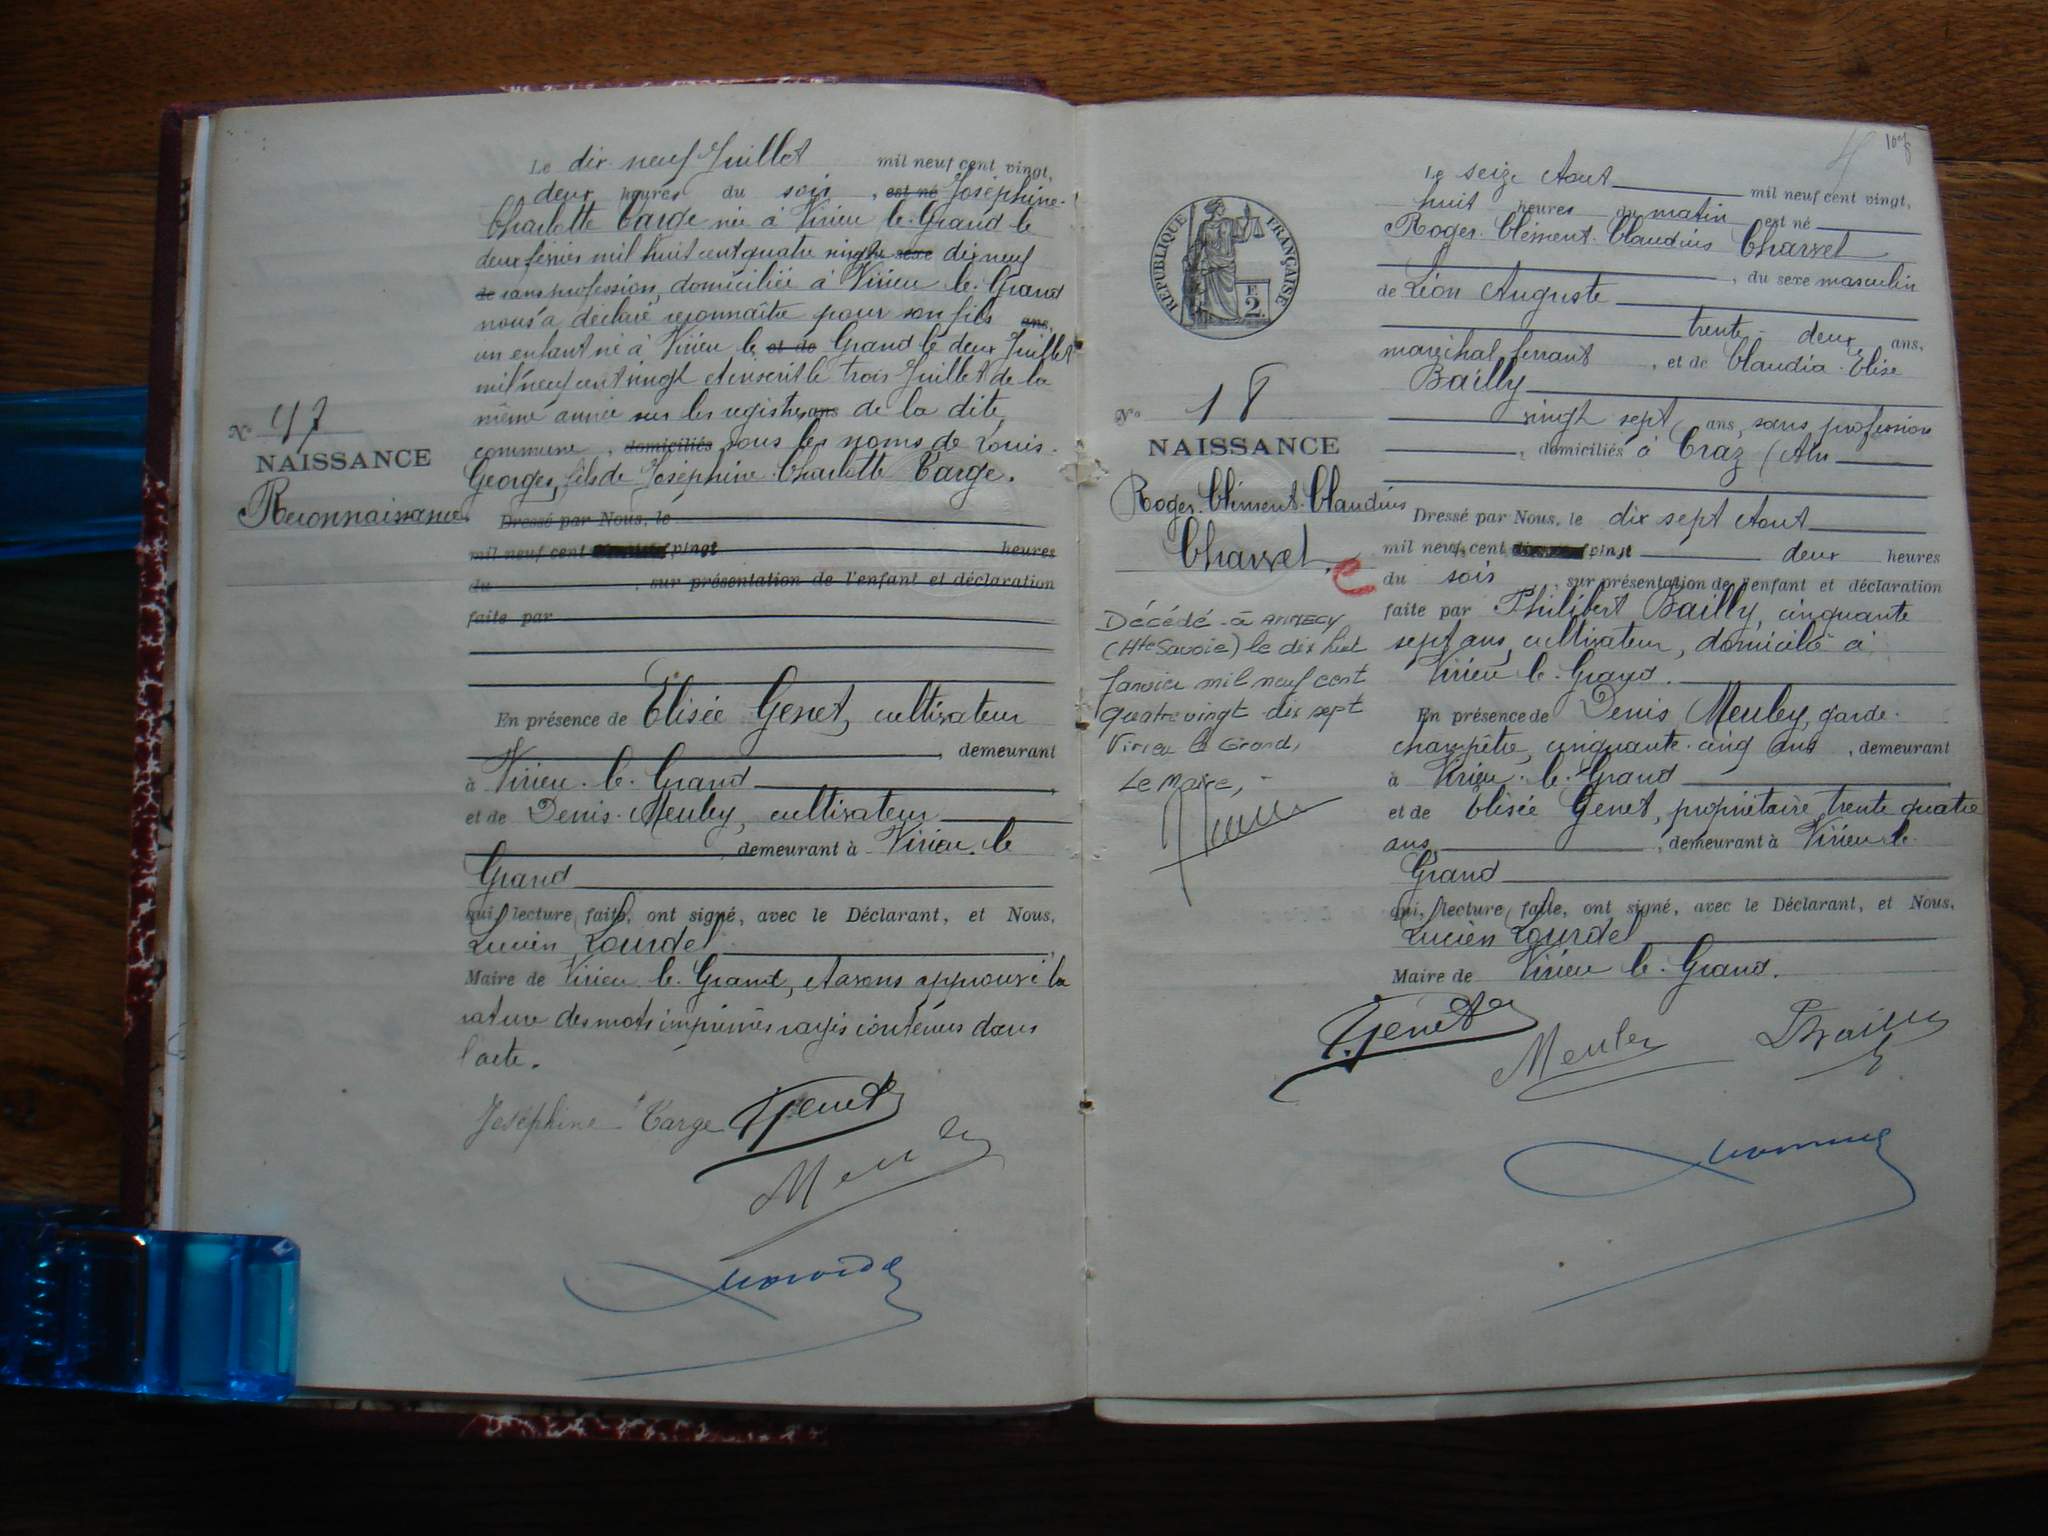 Le dix neuf Juillet mil neuf cent vingt,
deux heures du soir, est né Joséphine.
Charlotte Targe née à Virieu le Grand le
deux février mil huit cent quatre vingt sexe dix neuf
de sans profession, domiciliée à Virieu le Grand
nous a déclaré reconnaître pour son fils ans,
un enfant né à Virieu le et de Grand le deux Juillet
mil neuf cent vingt et inscrit le trois Juillet de la
même année sur les registres ans de la dite
commune, domiciliés sous les noms de Louis.
Georges, fils de Joséphine Charlotte Targe.
No 17
NAISSANCE
Reconnaissance
Dressé par Nous, le
mil neuf cent vingt heures
du , sur présentation de l'enfant et déclaration
faite par
En présence de Elisée Genet, cultivateur
, demeurant
à Virieu-le-Grand
et de Denis Meuley, cultivateur
, demeurant à Virieu le
Grand
qui, lecture faite, ont signé, avec le Déclarant, et Nous,
Lucien Lourdel
Maire de Virieu le Grand, et avons approuvé la
rature des mots imprimés rayés contenus dans
l'acte.
Joséphine Targe Genet
Meuley
108
RÉPUBLIQUE FRANÇAISE
F
2.
Le seize Aout mil neuf cent vingt,
huit heures du matin est né
Roger Clément Claudius Charvet
, du sexe masculin
de Léon Auguste
trente-deux ans,
maréchal ferrant, et de Claudia Elise
Bailly
vingt sept ans, sans profession
, domiciliés à Craz (Ain
No 18
NAISSANCE
Roger Clément Claudius
Charvet
Décédé à ANNECY
(Hte Savoie) le dix huit
Janvier mil neuf cent
quatre vingt dix sept
Virieu le Grand,
Le Maire,
Dressé par Nous, le dix sept Aout
mil neuf cent vingt deux heures
du soir, sur présentation de l'enfant et déclaration
faite par Philibert Bailly, cinquante
sept ans, cultivateur, domicilié à
Virieu le Grand.
En présence de Denis Meuley, garde-
champêtre, cinquante-cinq ans, demeurant
à Virieu-le-Grand
et de Elisée Genet, propriétaire, trente quatre
ans, demeurant à Virieu le
Grand
qui, lecture faite, ont signé, avec le Déclarant, et Nous,
Lucien Lourdel
Maire de Virieu le Grand.
Genet Meuley Bailly